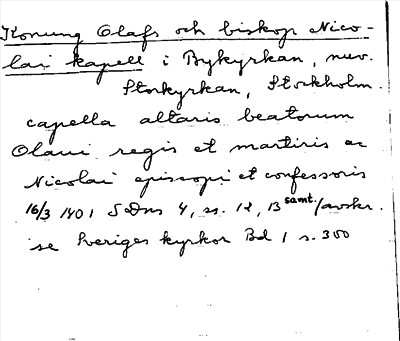 Konung Olafs och biskop Nico-
lai kapell i Bykyrkan, nuv.
Storkyrkan, Stockholm.
capella altaris beatorum
Olaui regis et martiris ac
Nicolai episcopi et confessoris
16/3 1401 SDns 4, s. 12, 13 samt./avskr.
se Sveriges kyrkor Bd 1 s. 300